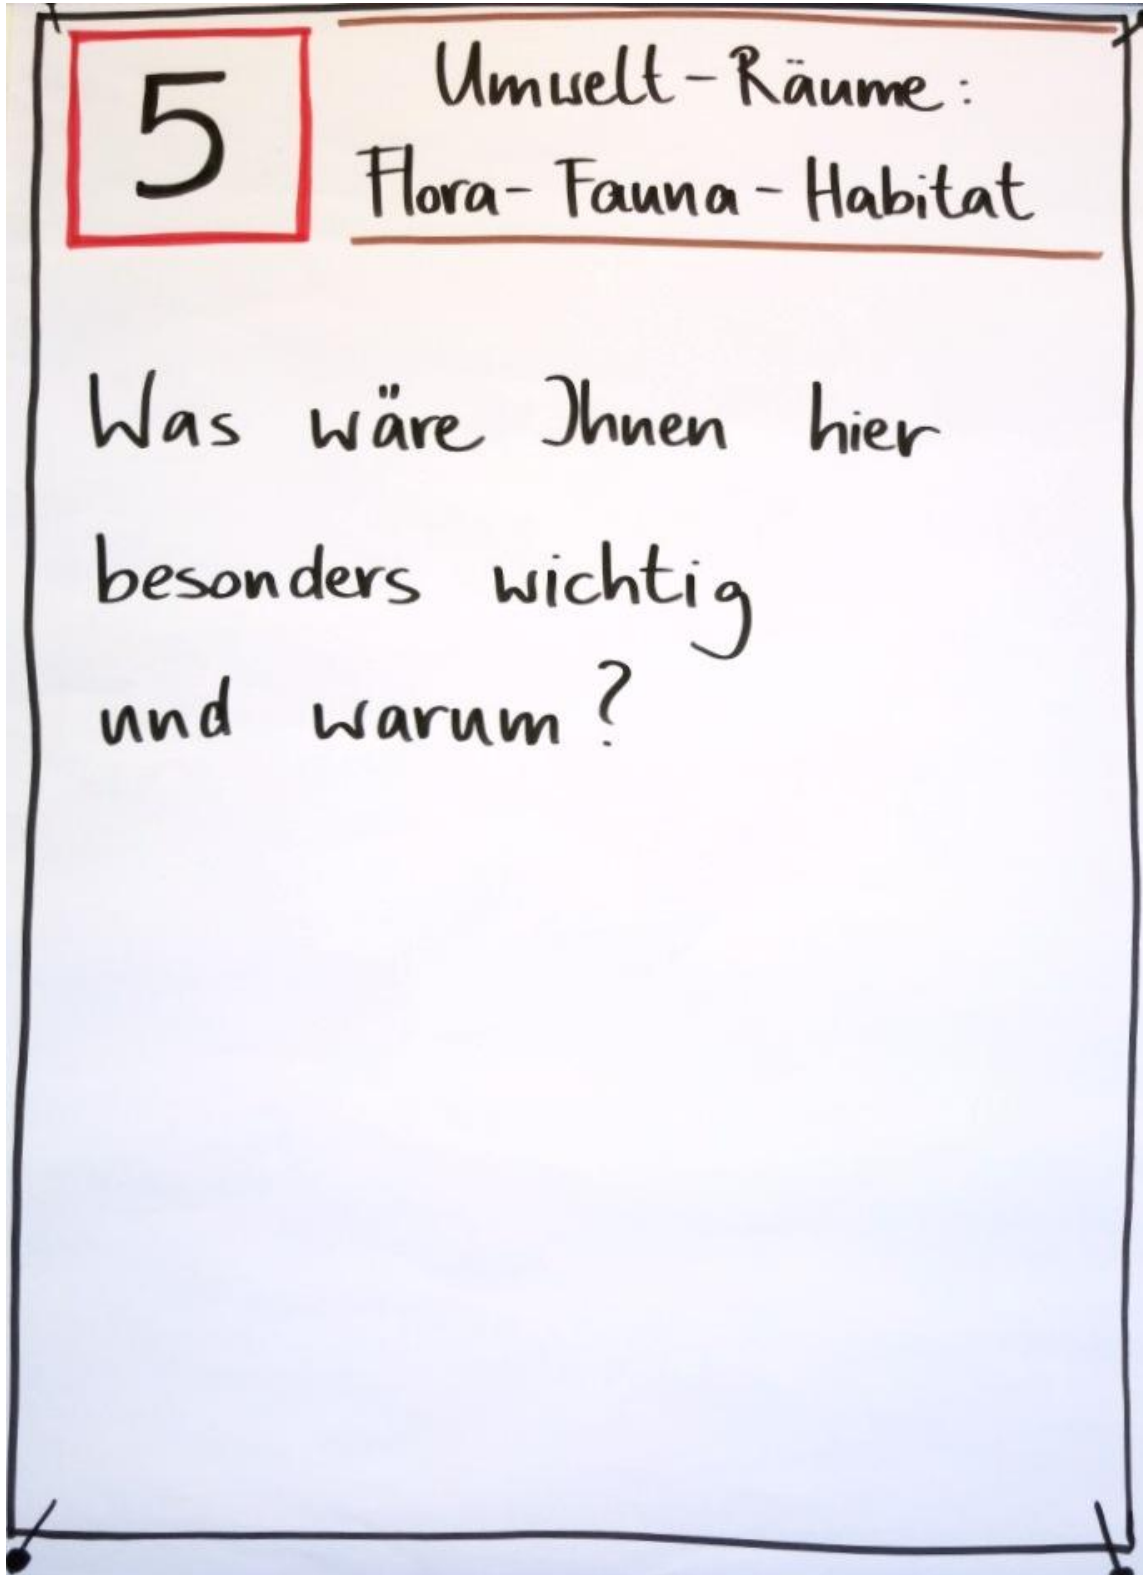 5
Umwelt-Räume:
Flora-Fauna-Habitat
Was wäre Ihnen hier
besonders wichtig
und warum?